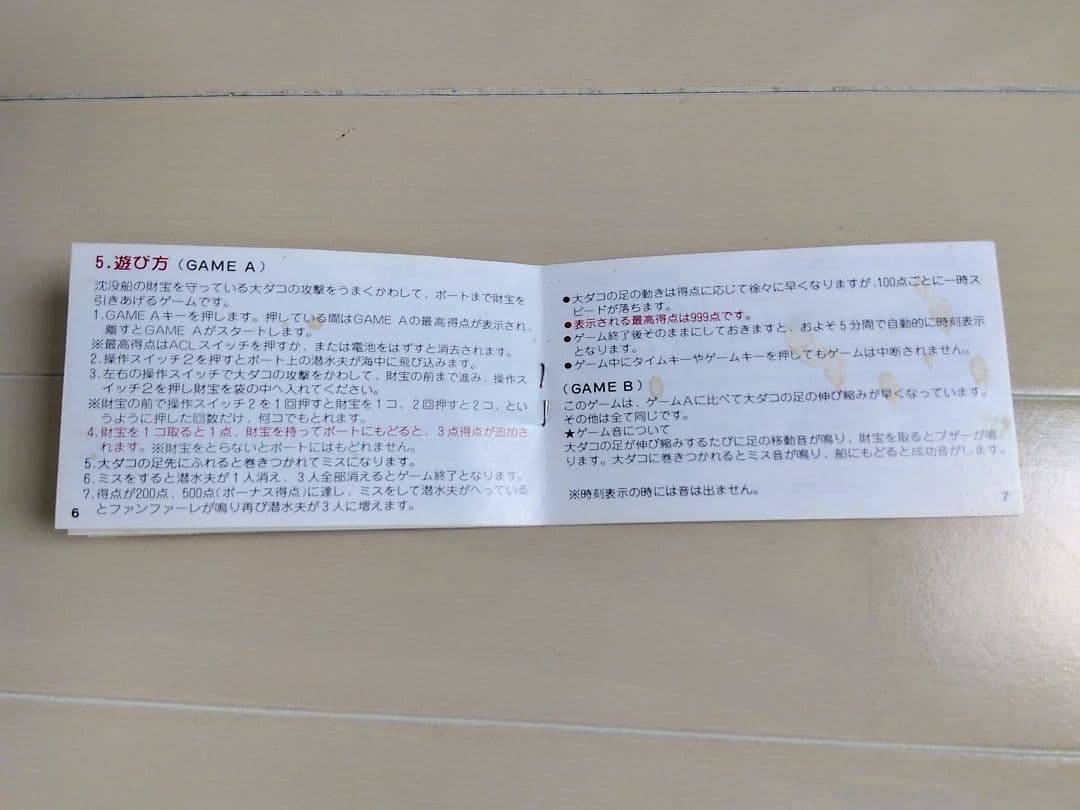 5.遊び方(GAME A)
沈没船の財宝を守っている大ダコの攻撃をうまくかわして、ボートまで財宝を
引きあげるゲームです。
1.GAME Aキーを押します。押している間はGAME Aの最高得点が表示され、
離すとGAME Aがスタートします。
※最高得点はACLスイッチを押すか、または電池をはずすと消去されます。
2.操作スイッチ2を押すとボート上の潜水夫が海中に飛び込みます。
3.左右の操作スイッチで大ダコの攻撃をかわして、財宝の前まで進み、操作ス
イッチ2を押し財宝を袋の中へ入れてください。
※財宝の前で操作スイッチ2を1回押すと財宝を1コ、2回押すと2コ、とい
うように押した回数だけ、何コでもとれます。
4.財宝を1コ取ると1点、財宝を持ってボートにもどると、3点得点が追加さ
れます。※財宝をとらないとボートにはもどれません。
5.大ダコの足先にふれると巻きつかれてミスになります。
6.ミスをすると潜水夫が1人消え、3人全部消えるとゲーム終了となります。
7.得点が200点、500点(ボーナス得点)に達し、ミスをして潜水夫がへっている
とファンファーレが鳴り再び潜水夫が3人に増えます。
6
●大ダコの足の動きは得点に応じて徐々に早くなりますが、100点ごとに一時ス
ピードが落ちます。
●表示される最高得点は999点です。
●ゲーム終了後そのままにしておきますと、およそ5分間で自動的に時刻表示
となります。
●ゲーム中にタイムキーやゲームキーを押してもゲームは中断されません。
(GAME B)
このゲームは、ゲームAに比べて大ダコの足の伸び縮みが早くなっています。
その他は全て同じです。
★ゲーム音について
大ダコの足が伸び縮みするたびに足の移動音が鳴り、財宝を取るとブザーが鳴
ります。大ダコに巻きつかれるとミス音が鳴り、船にもどると成功音がします。
※時刻表示の時には音は出ません。
7